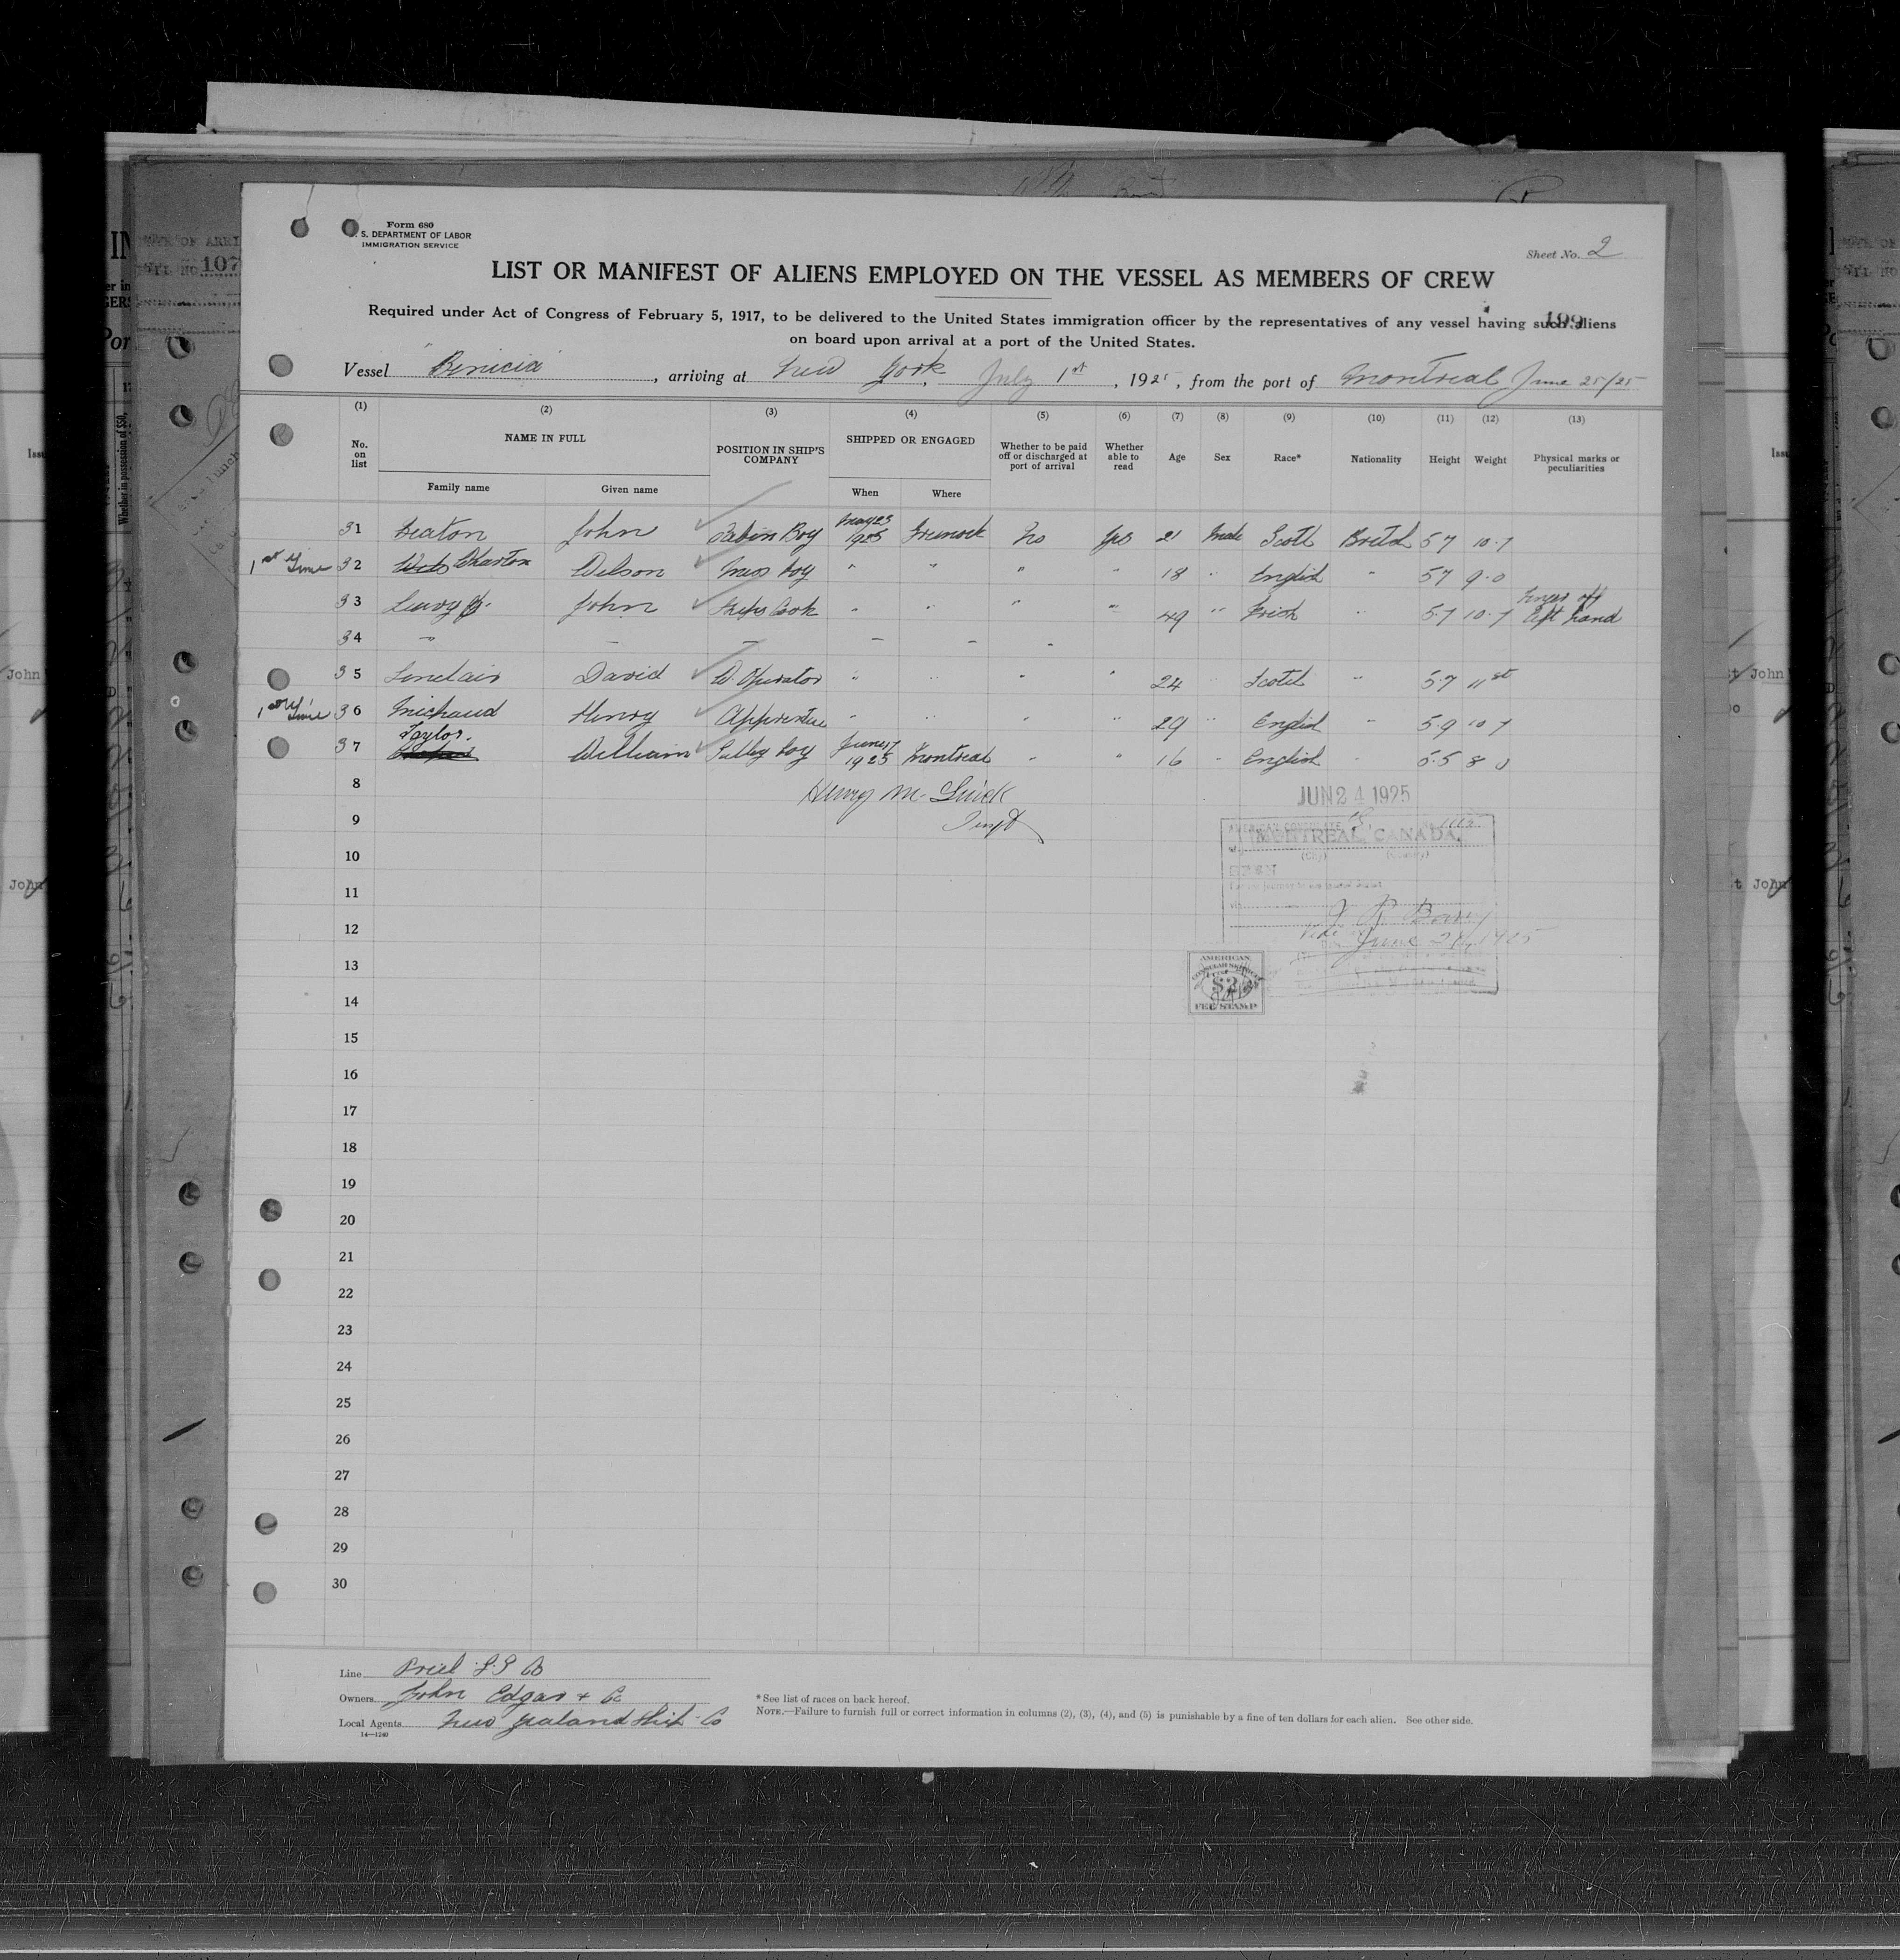 Form 680
U. S. DEPARTMENT OF LABOR
IMMIGRATION SERVICE
Sheet No. 2
LIST OR MANIFEST OF ALIENS EMPLOYED ON THE VESSEL AS MEMBERS OF CREW
Required under Act of Congress of February 5, 1917, to be delivered to the United States immigration officer by the representatives of any vessel having such aliens
on board upon arrival at a port of the United States.
Vessel "Benicia", arriving at New York, July 1st, 1925, from the port of Montreal June 25/25
(1) (2) (3) (4) (5) (6) (7) (8) (9) (10) (11) (12) (13)
No. on list NAME IN FULL Family name Given name POSITION IN SHIP'S COMPANY SHIPPED OR ENGAGED When Where Whether to be paid off or discharged at port of arrival Whether able to read Age Sex Race* Nationality Height Weight Physical marks or peculiarities
31 Beaton John Cabin Boy May 23 1925 Greenock No Yes 21 Male Scotch British 5 7 10.7
1st Time 32 Wharton Wilson Mess boy " " " " 18 " English " 5 7 9.0
33 John Ships Cook " " " " 49 " Irish " 5.7 10.7 Finger off left hand
34 " – – – – -
35 Sinclair David W. Operator " " " " 24 " Scotch " 5.7 11st
1st Time 36 Michaud Henry Apprentice " " " " 29 " English " 5.9 10 7
37 Taylor. William Galley boy June 17 1925 Montreal " " 16 " English " 5.5 8 0
8 Henry M.
9
JUN 24 1925
MONTREAL, CANADA.
(City) (Country)
SEEN
June 24, 1925
10
11
12
13
14
AMERICAN
CONSULAR SERVICE
$2
FEE STAMP
15
16
17
18
19
20
21
22
23
24
25
26
27
28
29
30
Line S.S Co
Owners John Edgar + Co
Local Agents New Zealand Ship Co
14—1240
*See list of races on back hereof.
NOTE.—Failure to furnish full or correct information in columns (2), (3), (4), and (5) is punishable by a fine of ten dollars for each alien. See other side.